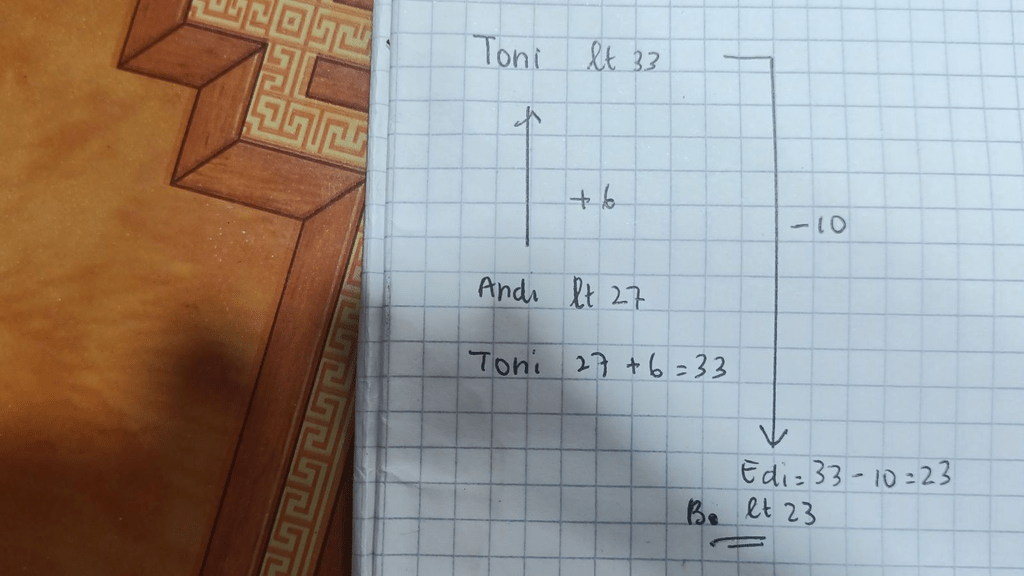 Toni lt 33
+ 6
- 10
Andi lt 27
Toni 27 + 6 = 33
Edi = 33 - 10 = 23
B. lt 23